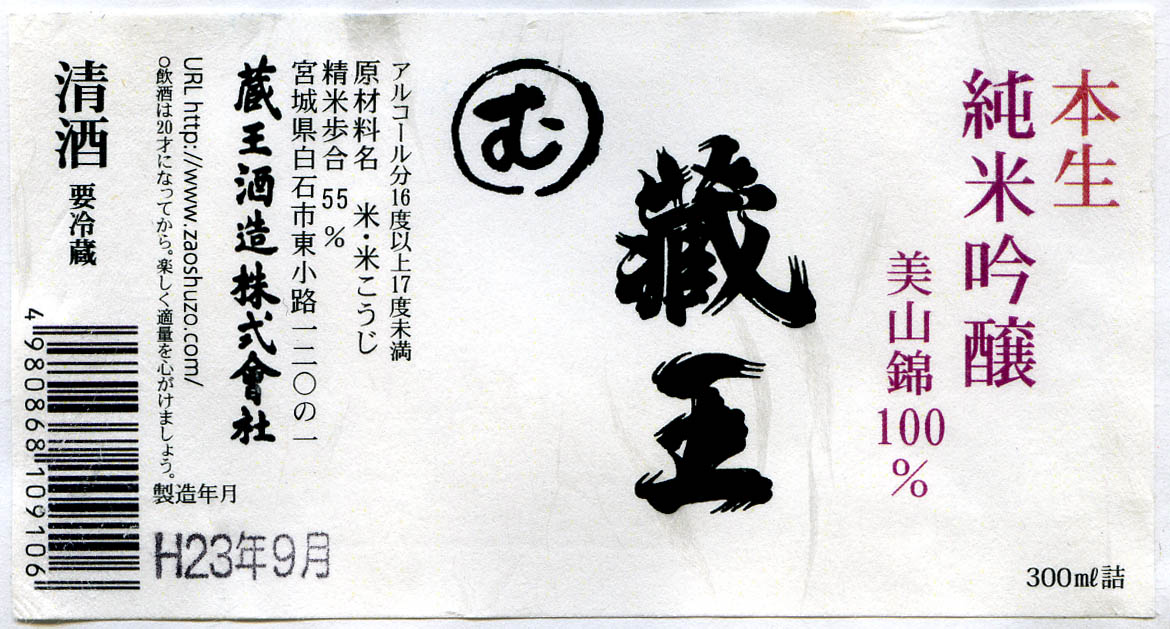 本生
純米吟醸
美山錦100%
300㎖詰
藏王
む
アルコール分16度以上17度未満
原材料名 米・米こうじ
精米歩合 55%
宮城県白石市東小路一二〇の一
蔵王酒造株式會社
URL http://www.zaoshuzo.com/
○飲酒は20才になってから。楽しく適量を心がけましょう。
製造年月
H23年9月
清酒 要冷蔵
4980868109106